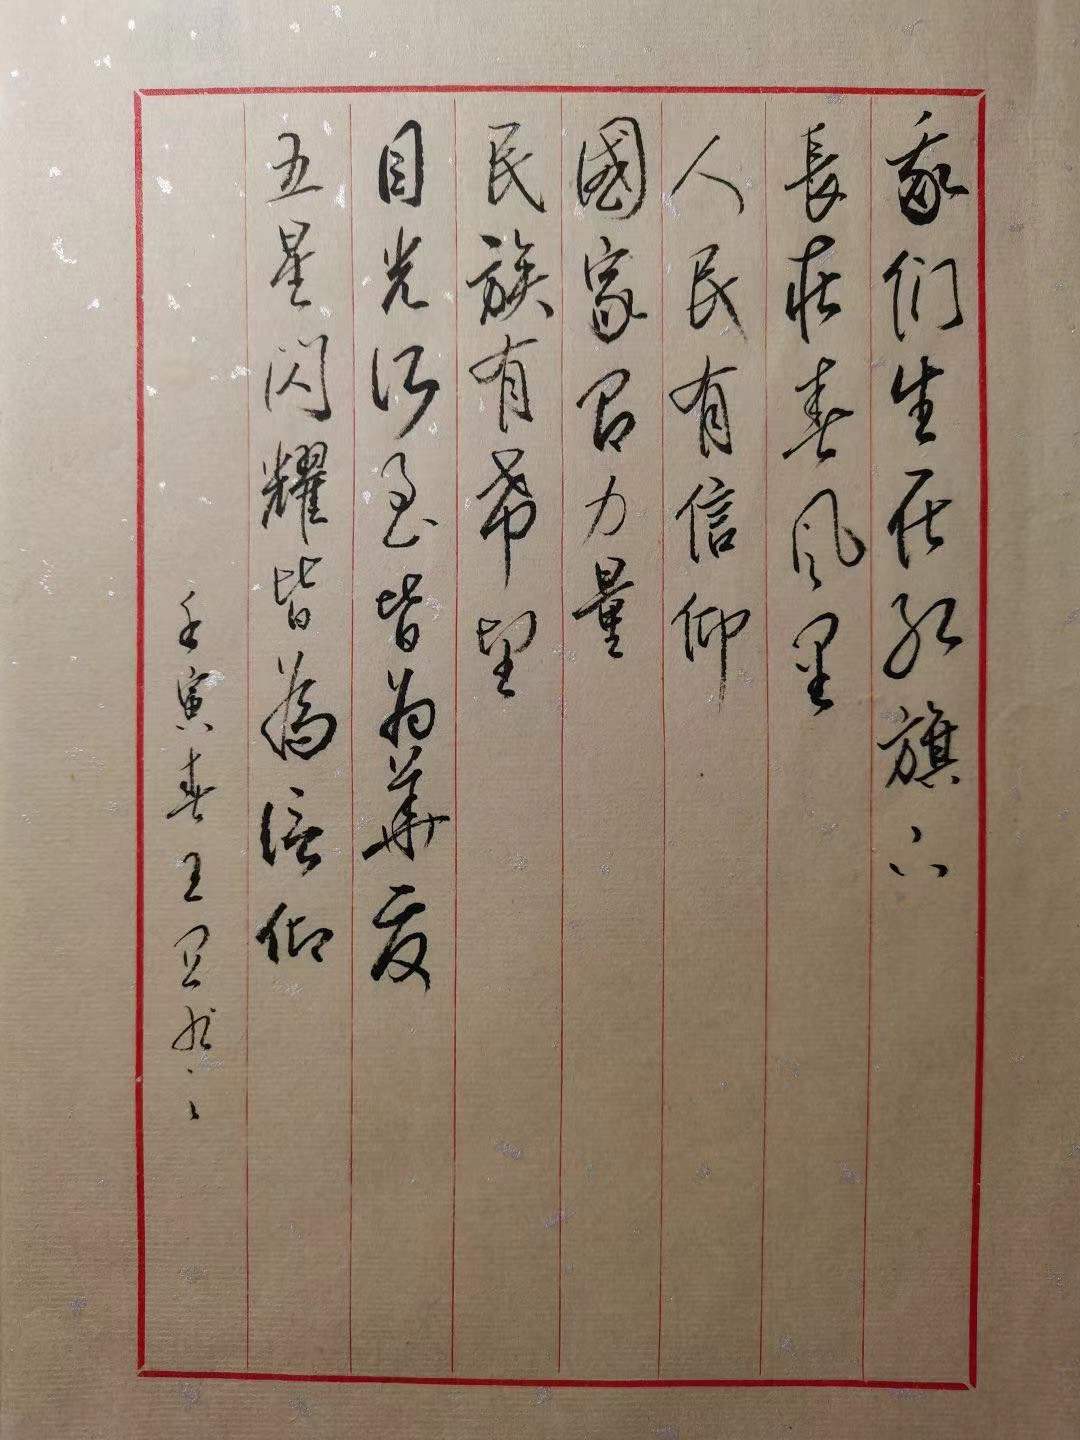 我们生在红旗下
長在春风里
人民有信仰
國家有力量
民族有希望
目光所至皆为華夏
五星闪耀皆為信仰
壬寅春王